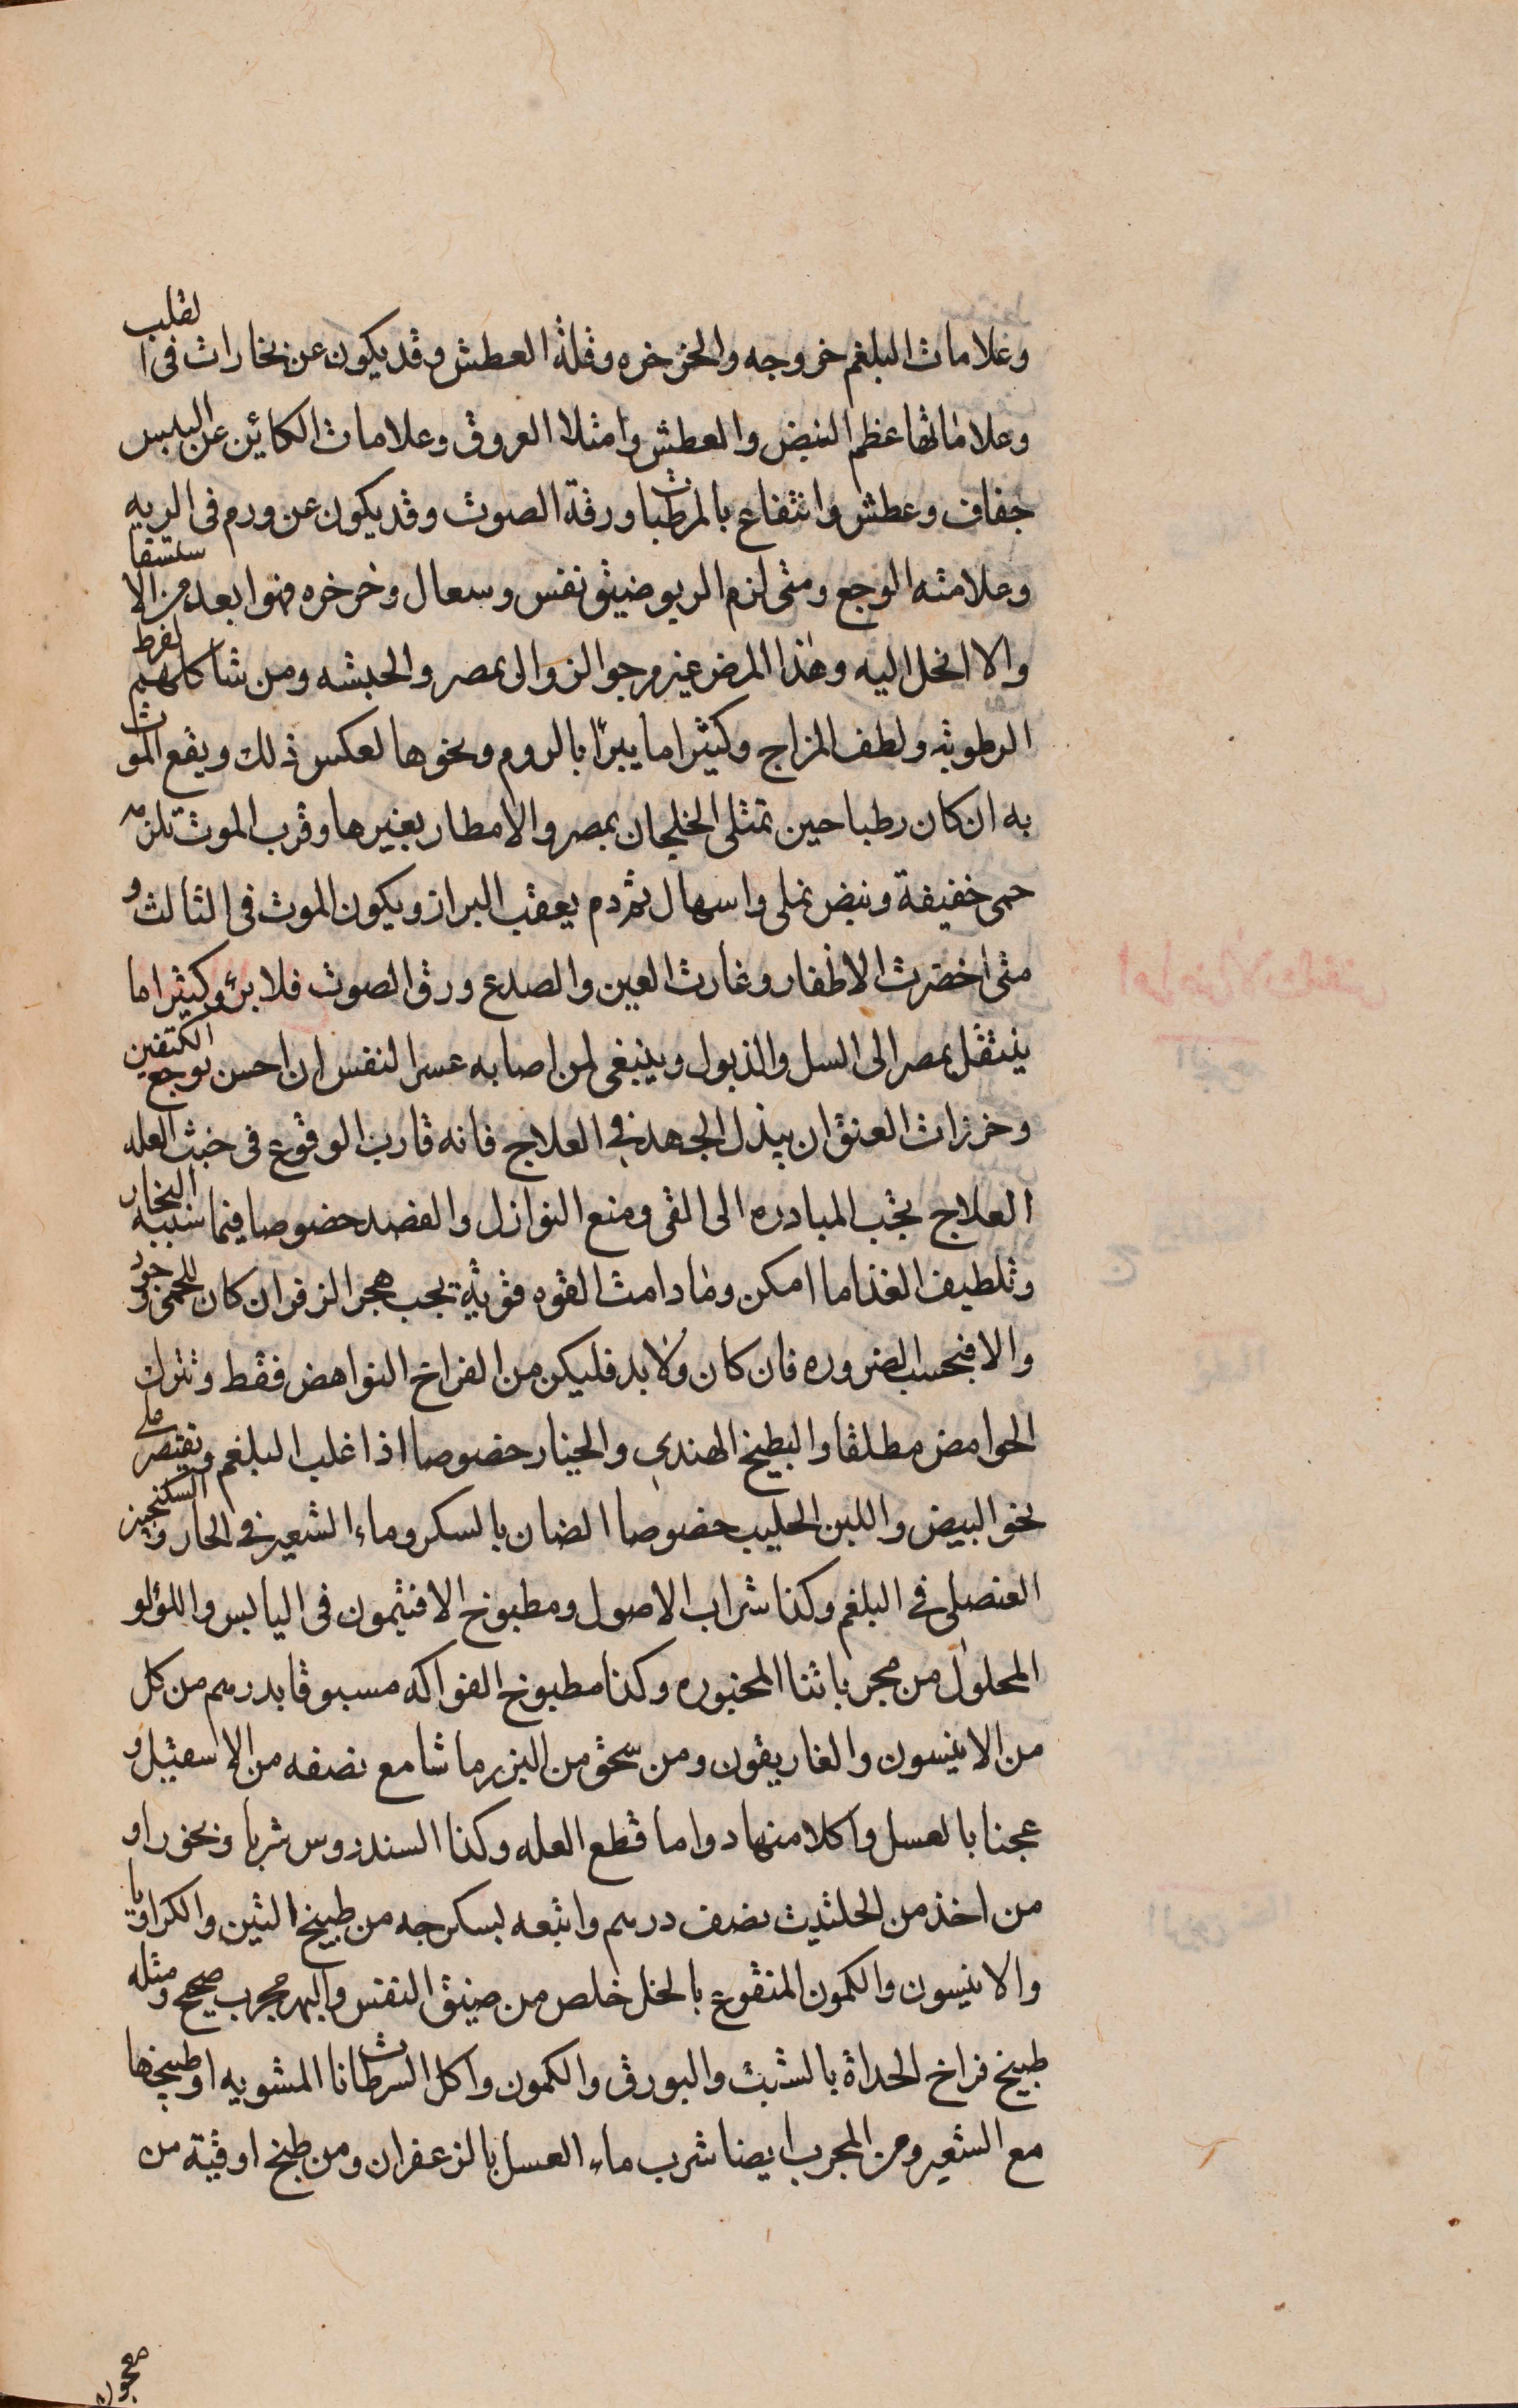 وعلامات البلغم خروجه والخرخره وقلة العطش وقد يكون عن بخارات فى القلب
وعلاماتها عظم النبض والعطش وامتلا العروق وعلامات الكائن عن اليبس
جفاف وعطش وانتفاع بالمرطبات ورقة الصوت وقد يكون عن ورم فى الريه
وعلامته الوجع ومتى لزم الربو ضيق نفس وسعال وخرخره فهوا بعد من الاستسقا
والا انحل اليه وهذا المرض غير مرجو الزوال بمصر والحبشه ومن شاكلهم لفرط
الرطوبه ولطف المزاج وكثيرا ما يبرأ بالروم ونحوها لعكس ذلك ويقع الموت
به ان كان رطبا حين تمتلى الخلجان بمصر والامطار بغيرها وقرب الموت تلزمه
حمى خفيفة ونبض نملى واسهال ثم دم يعقب البراز ويكون الموت فى الثالث و
متى اخضرت الاظفار وغارت العين والصدع ورق الصوت فلا برؤ وكثيرا ما
ينتقل بمصر الى السل والذبول وينبغى لمن اصابه عسر النفس ان احس بوجع الكتفين
وخرزات العنق ان يبذل الجهد فى العلاج فانه قارب الوقوع فى خبث العله
العلاج يجب المبادره الى القى ومنع النوازل والفصد خصوصا فيما سببه البخار
وتلطيف الغذا ما امكن وما دامت القوه قوية يجب هجر الزفر ان كان للحمى وجود
والا فبحسب الضروره فان كان ولا بد فليكن من الفراخ النواهض فقط وتترك
الحوامض مطلقا والبطيخ الهندى والخيار خصوصا اذا غلب البلغم ويقتصر على
نحو البيض واللبن الحليب خصوصا الضان بالسكر وماء الشعير فى الحار والسكنجبين
العنصلى فى البلغم وكذا شراب الاصول ومطبوخ الافتيمون فى اليابس واللؤلو
المحلول من مجرباتنا المخبوره وكذا مطبوخ الفواكه مسبوقا بدرهم من كل
من الانيسون والغاريقون ومن سحق من البزر ما شا مع نصفه من الاسقيل و
عجنا بالعسل واكلا منها دواما قطع العله وكذا السندروس شربا وبخورا و
من اخذ من الحلتيت نصف درهم واتبعه بسكرجه من طبيخ التين والكراويا
والانيسون والكمون المنقوع بالخل خلص من ضيق النفس والبهر مجرب صحيح ومثله
طبيخ فراخ الحداة بالشبت والبورق والكمون واكل السرطانات المشويه او طبيخها
مع الشعير ومن المجرب ايضا شرب ماء العسل بالزعفران ومن طبخ اوقية من
معجون